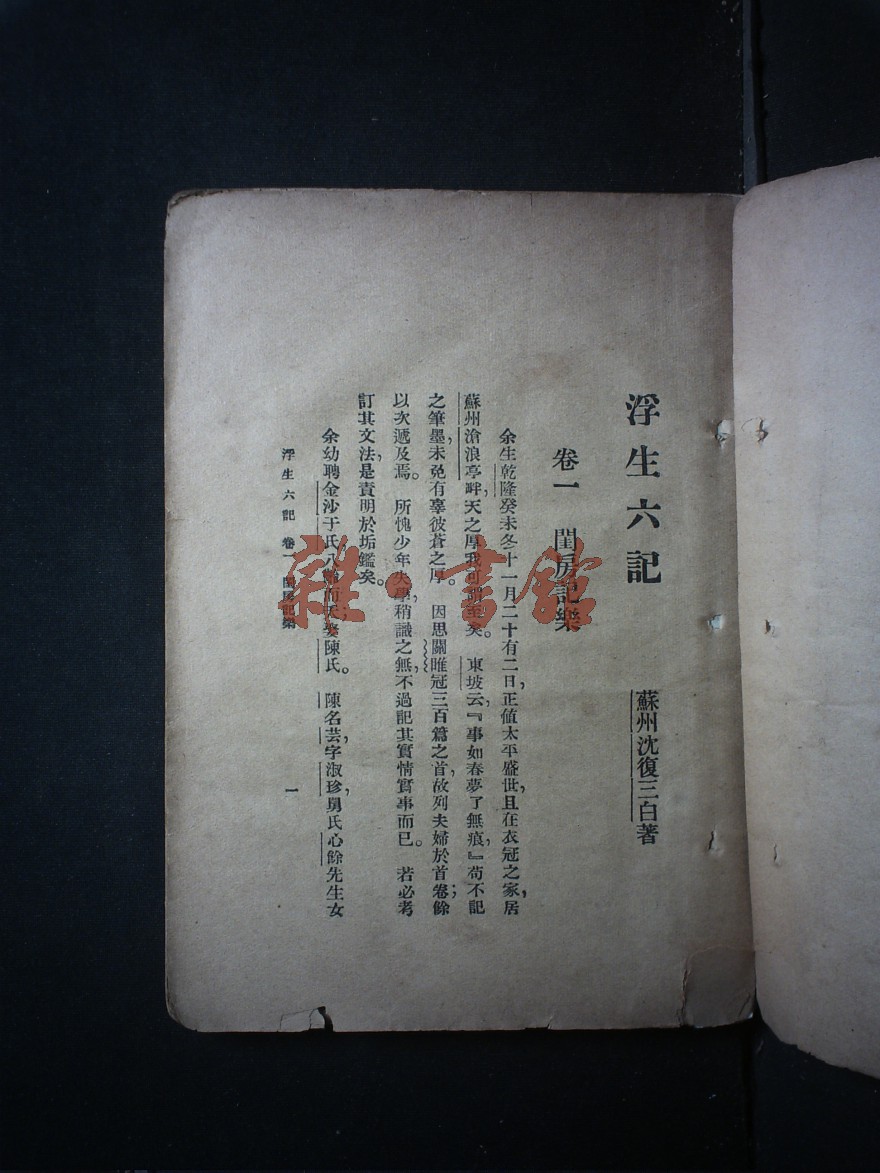 浮生六記
蘇州沈復三白著
卷一 閨房記樂
余生乾隆癸未冬十一月二十有二日,正値太平盛世,且在衣冠之家,居
蘇州滄浪亭畔,天之厚我,可謂至矣。東坡云,『事如春夢了無痕,』苟不記
之筆墨,未免有辜彼蒼之厚。因思關雎冠三百篇之首,故列夫婦於首卷;餘
以次遞及焉。所愧少年失學,稍識之無,不過記其實情實事而已。若必考
訂其文法,是責明於垢鑑矣。
余幼聘金沙于氏,八齡而夭;娶陳氏。陳名芸,字淑珍,舅氏心餘先生女
浮生六記 卷一 閨房記樂
一
雜·書館